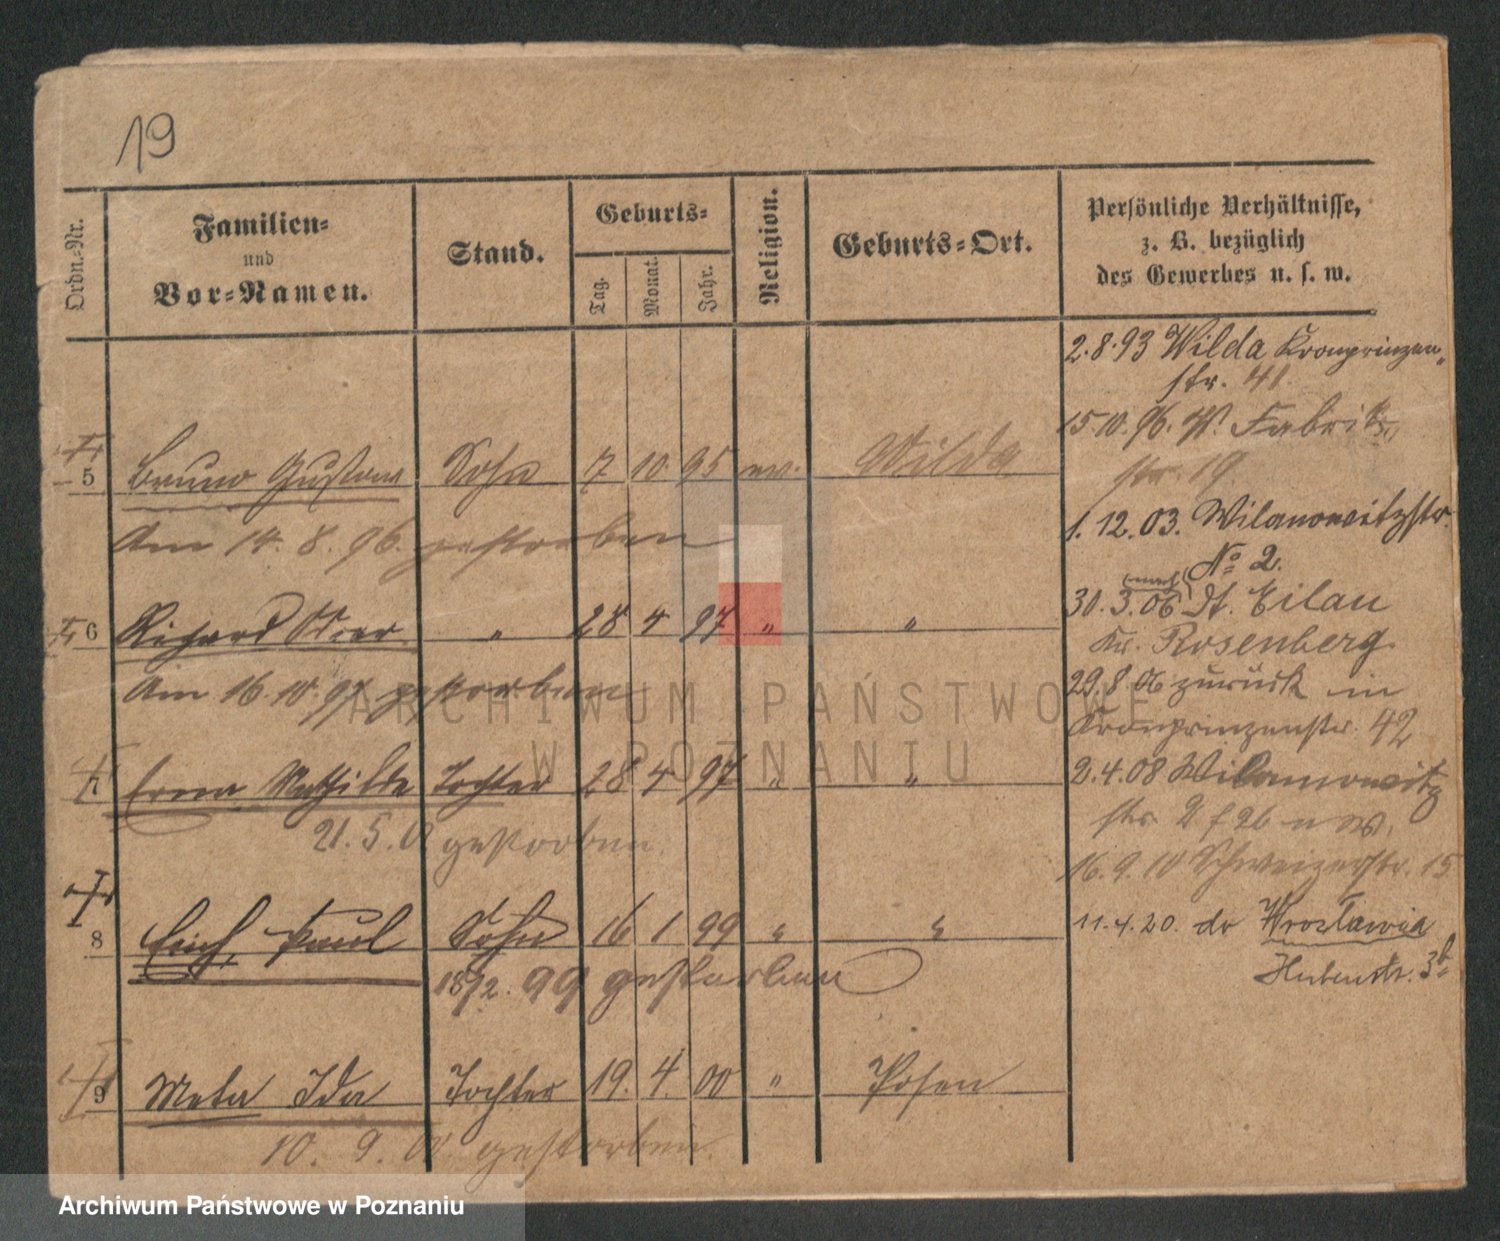 19
Ordn.-Nr.
Familien-
und
Vor-Namen.
Stand.
Geburts-
Tag.
Monat.
Jahr.
Religion.
Geburts-Ort.
Persönliche Verhältnisse,
z. B. bezüglich
des Gewerbes u. s. w.
2.8.93 Wilda Kronprinzen-
str. 41.
15.10.96. W. Fabrik-
str. 19
5 Bruno Gustav Sohn 7 10. 95 ev. Wilda
Am 14. 8. 96. gestorben
1. 12. 03. Wilamowitzstr.
No 2.
6 Richard " 28 4 97 " "
Am 16. 10. 97 gestorben
30. 3. 06 (nach) Dt. Eilau
Kr. Rosenberg.
29.8.06 zurück in
Kronprinzenstr. 42
7 Erna Mathilde Tochter 28 4 97 " "
21. 5. gestorben.
2.4.08 Wilamowitz
str. 2
16. 9. 10 Schweizerstr. 15
8 Erich, Paul Sohn 16 1 99 " "
18/2. 99 gestorben
11.4.20. do Wrocławia
Hubenstr. 3b
9 Meta Ida Tochter 19. 4. 00 " Posen
10. 9. 00 gestorben.
ARCHIWUM PAŃSTWOWE
W POZNANIU
Archiwum Państwowe w Poznaniu